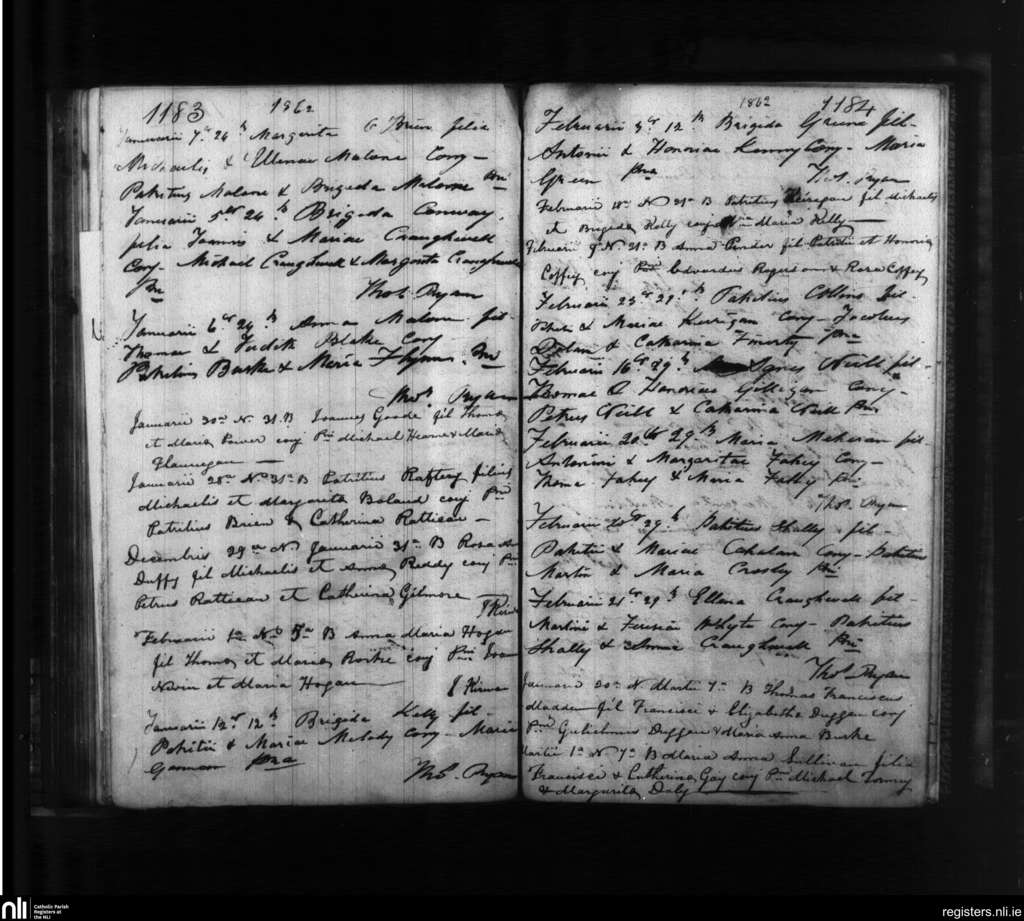 1183 1862
Januarii 7 24 Margarita O Brien filia
Michaelis & Ellenae Malone Conj -
Patritius Malone & Brigida Malone Pni
Januarii 5 24 Brigida Conway
filia Joannis & Mariae Craughwell
Conj - Michael Craughwell & Margarita Craughwell
Pni
Thos Ryan
Januarii 6 24 Anna Malone fil
Thomae & Judith Blake Conj
Patritius Burke & Maria Flynn Pni
Thos Ryan
Januarii 30 N 31 B Joannes Goode fil Thoma
et Maria Power conj Pni Michael Hearne & Maria
Flannegan
Januarii 28 N 31 B Patritius Raftery filius
Michaelis et Margarita Boland conj Pni
Patritius Brien & Catherina Rattican -
Decembris 29 N Januarii 31 B Rosa
Duffy fil Michaelis et Anna Reddy conj Pni
Petrus Rattican et Catherina Gilmore
J Kirwan
Februarii 1a N B Anna Maria Hogan
fil Thoma et Maria Rorke conj Pni
Nevin et Maria Hogan
J Kirwan
Januarii 12 12 Brigida Kelly fil -
Patritii & Mariae Melody Conj - Maria
Gannon Pna
Thos. Ryan
1862 1184
Februarii 3 12 Brigida Greene fil -
Antonii & Honoriae Kenny Conj - Maria
Green Pna
Thos. Ryan
Februarii 18 N 21 B Patritius fil Michaelis
et Brigida Kelly conj Maria Kelly
Februarii 9 N 21 B Anna Pender fil Patritii et Honoria
Coffey conj Pni Edvardus Rogerson & Rosa Coffey
Februarii 23 29 Patritius Collins fil -
& Mariae Kerrigan Conj - Jacobus
Dolan & Catharina Finerty Pni
Februarii 16 29 Agnes Neill fil -
Thomae & Honoriae Gilligan Conj -
Petrus Neill & Catharina Neill Pni
Februarii 20 29 Maria Mekeran fil
Antonii & Margaritae Fahey Conj -
Thoma Fahey & Maria Fahey Pni
Thos. Ryan
Februarii 29 Patritius Shally fil -
Patritii & Mariae Cahalan Conj - Patritius
Martin & Maria Crosby Pni
Februarii 21 29 Ellena Craughwell fil -
Martini & Whyte Conj - Patritius
Shally & Anna Craughwell Pni
Thos Ryan
Januarii 30 N Martii 7 B Thomas Franciscus
Madden fil Francisci & Elizabetha Duggan conj
Pni Gulielmus Duggan & Maria Anna Burke
Martii 1a N 7a B Maria Anna Sullivan filia
Francisci & Catherina Gay conj Pni Michael Tormey
& Margarita Daly
nli Catholic Parish
Registers at
the NLI
registers.nli.ie